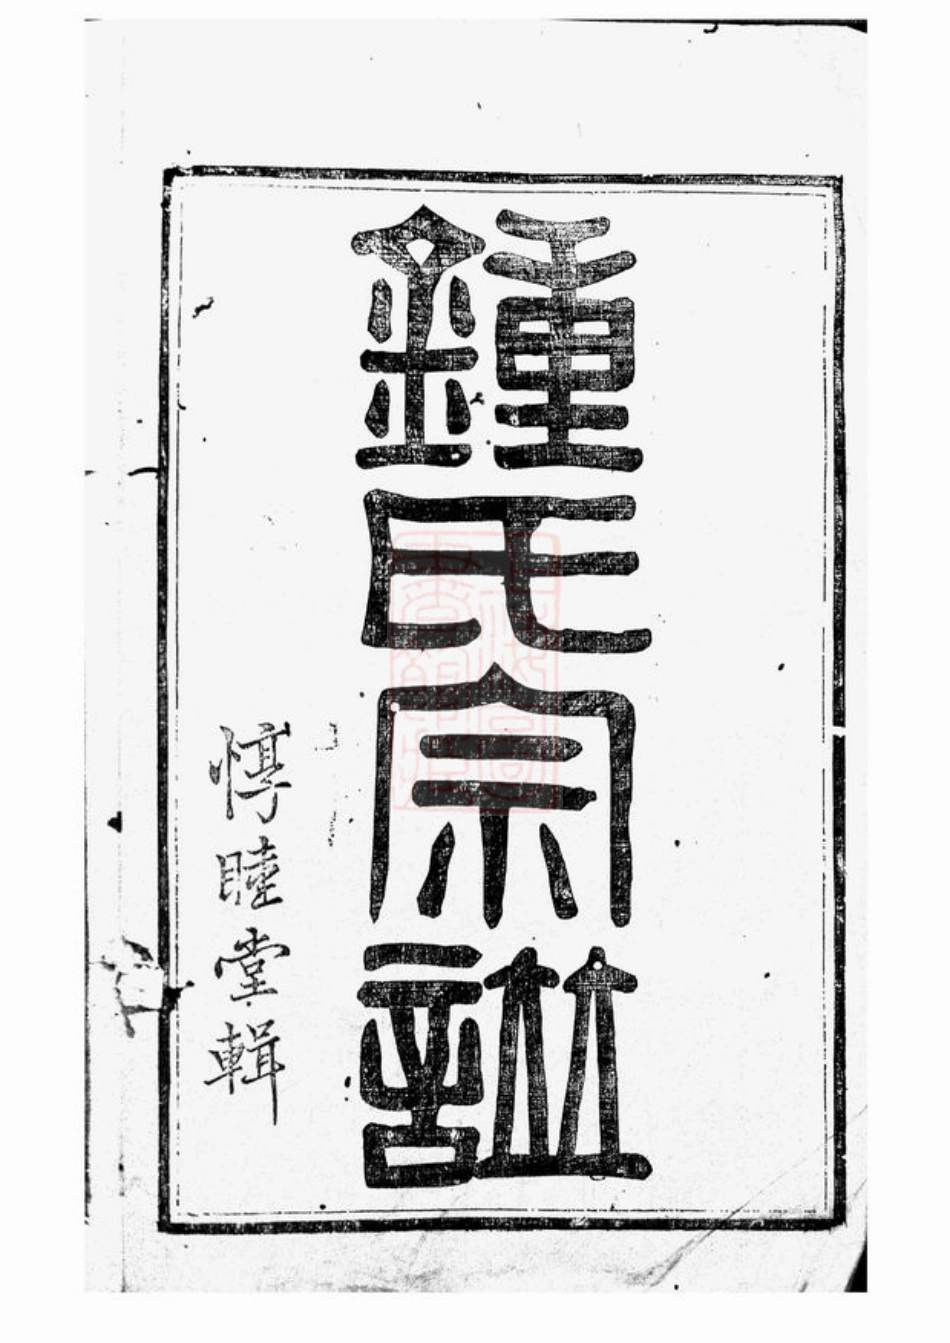 鍾氏宗譜
惇睦堂輯